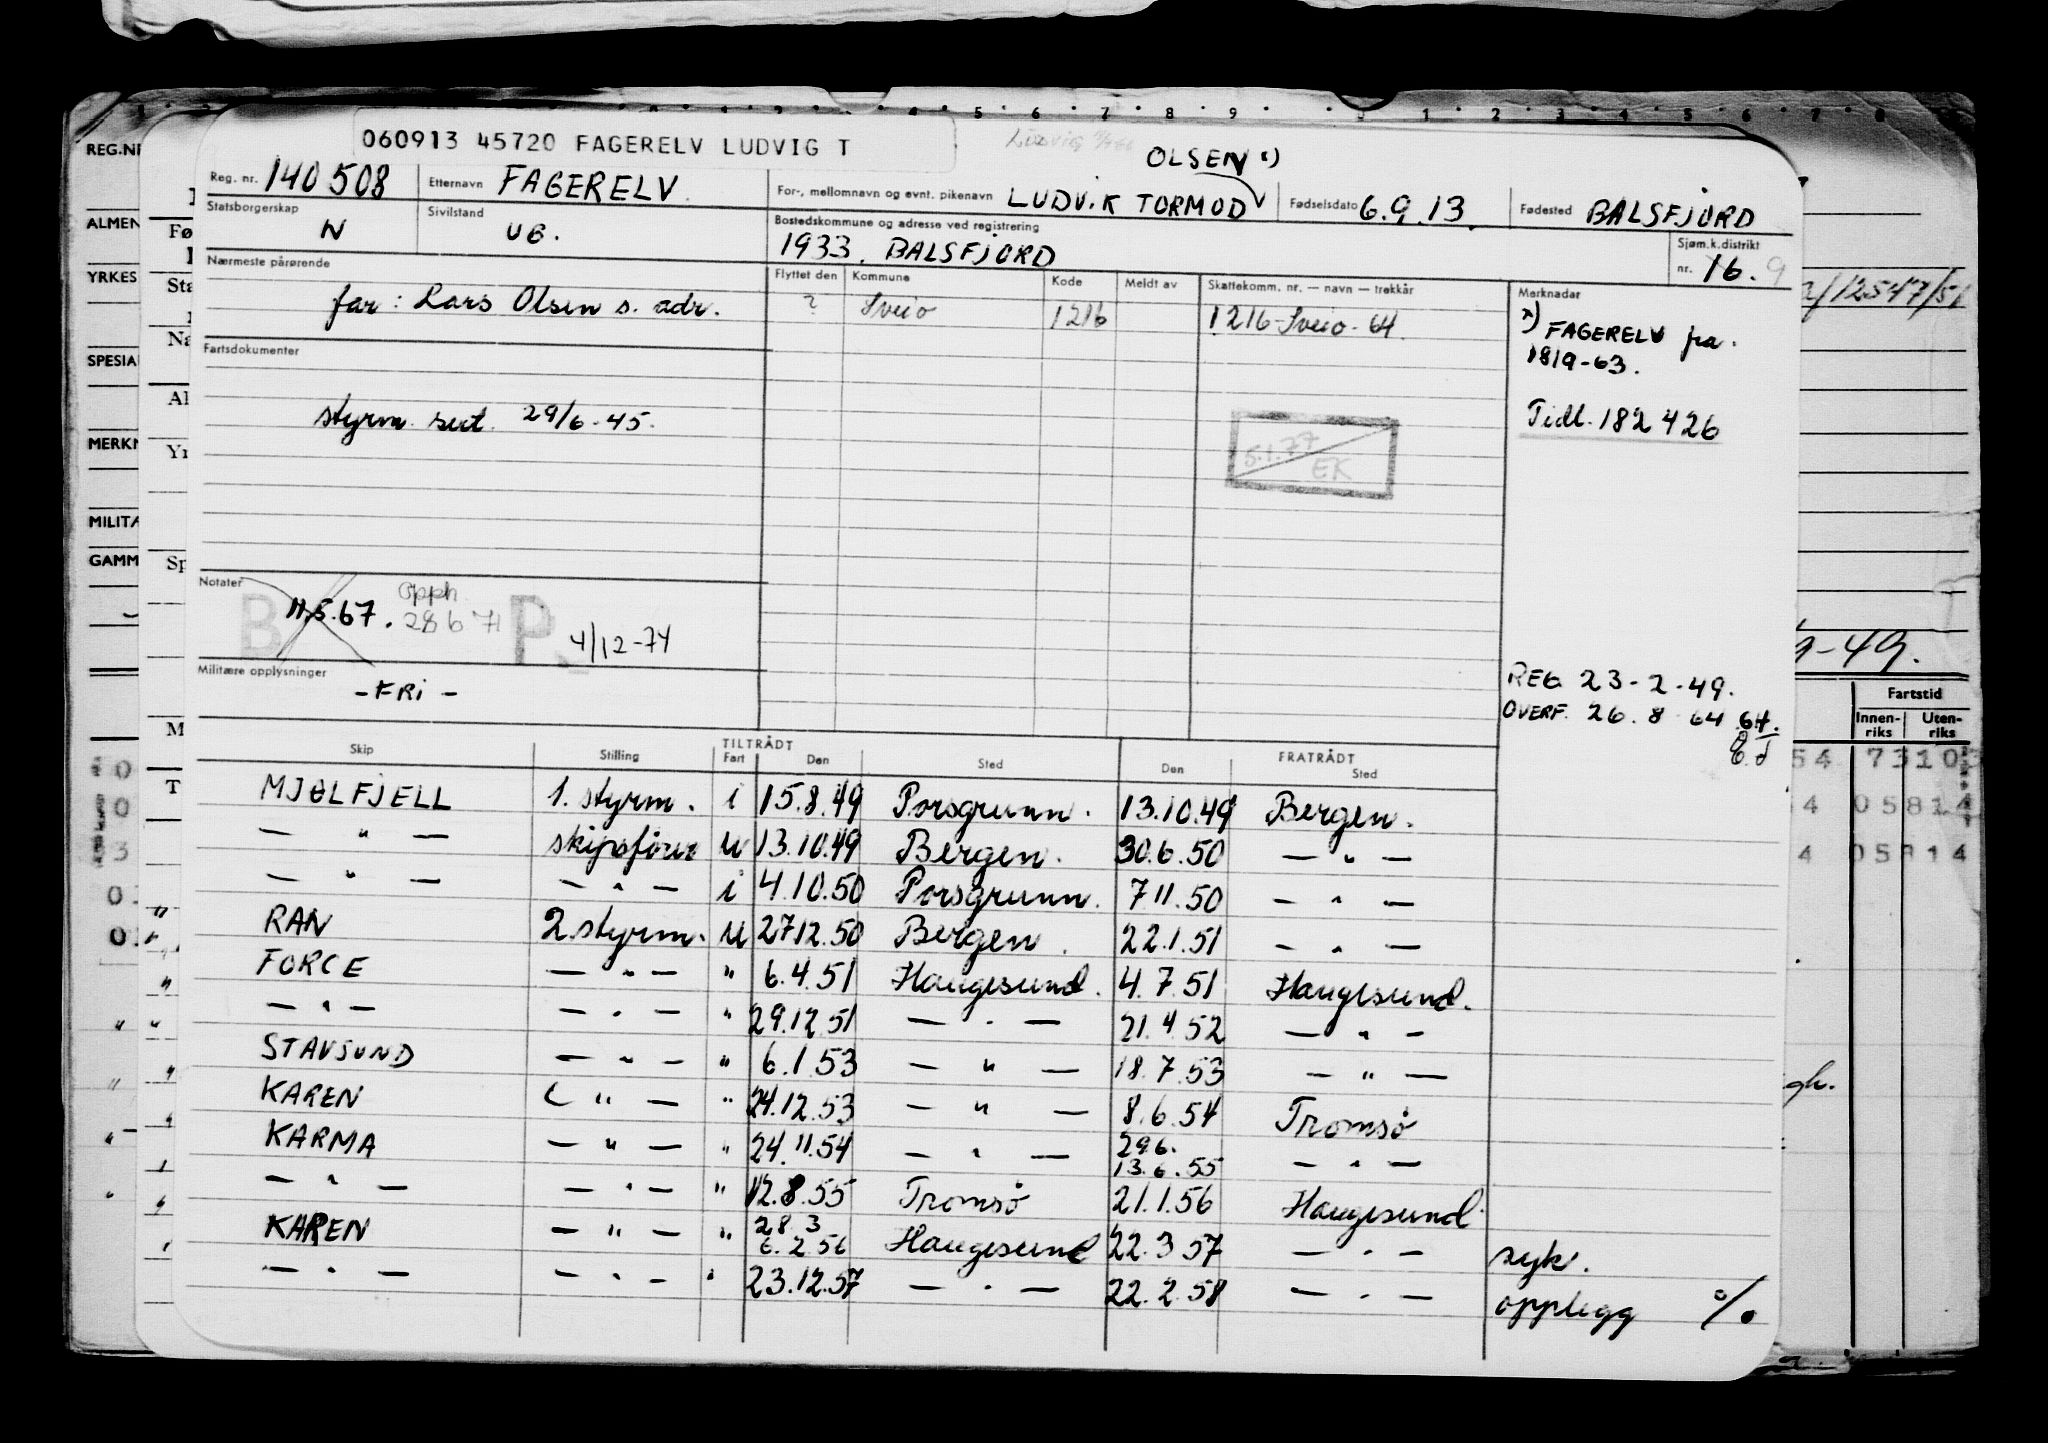 060913 45720 FAGERELV LUDVIG T
OLSEN x)
Reg. nr. 140508 Etternavn FAGERELV For-, mellomnavn og evnt. pikenavn LUDVIK TORMOD Fødselsdato 6.9.13. Fødested BALSFJORD
Statsborgerskap N Sivilstand UG. Bostedskommune og adresse ved registrering
1933. BALSFJORD Sjøm.k.distrikt nr. 16. 9
Nærmeste pårørende Flyttet den Kommune Kode Meldt av Skattekomm. nr. — navn — trekkår Merknader
far: Lars Olsen s. adr. ? Sveio 1216 1216-Sveio-64
x) FAGERELV fra
1819-63.
Fartsdokumenter
styrm. sert. 29/6-45.
Tidl. 182426
5.1.77
EK
Notater
B 11.5.67. opph. 28 6 71 P 4/12-74
Militære opplysninger
- FRI -
REG. 23-2-49.
OVERF. 26.8-64
Skip Stilling TILTRÅDT Fart Den Sted FRATRÅDT Den Sted
MJØLFJELL 1. styrm. i 15.8.49 Porsgrunn. 13.10.49 Bergen.
— " — skipsfører u 13.10.49 Bergen. 30.6.50 — " —
— " — — " — i 4.10.50 Porsgrunn. 7.11.50 — " —
RAN 2. styrm. u 27.12.50 Bergen. 22.1.51 — " —
FORCE — " — " 6.4.51 Haugesund. 4.7.51 Haugesund.
— " — — " — " 29.12.51 — " — 21.4.52 — " —
STAVSUND — " — " 6.1.53 — " — 18.7.53 — " —
KAREN — " — " 24.12.53 — " — 8.6.54 Tromsö
KARMA — " — " 24.11.54 — " — 29.6. 13.6.55 — " —
— " — — " — " 12.8.55 Tromsö 21.1.56 Haugesund
KAREN — " — " 28.3 6.2.56 Haugesund 22.3.57 — " — syk.
— " — — " — " 23.12.57 — " — 22.2.58 — " — opplegg %
REG.NR
ALMEN
YRKES
SPESIA
MERKN
MILITÆ
GAMM
12547/51
9-49.
Fartstid
Innen-riks Uten-riks